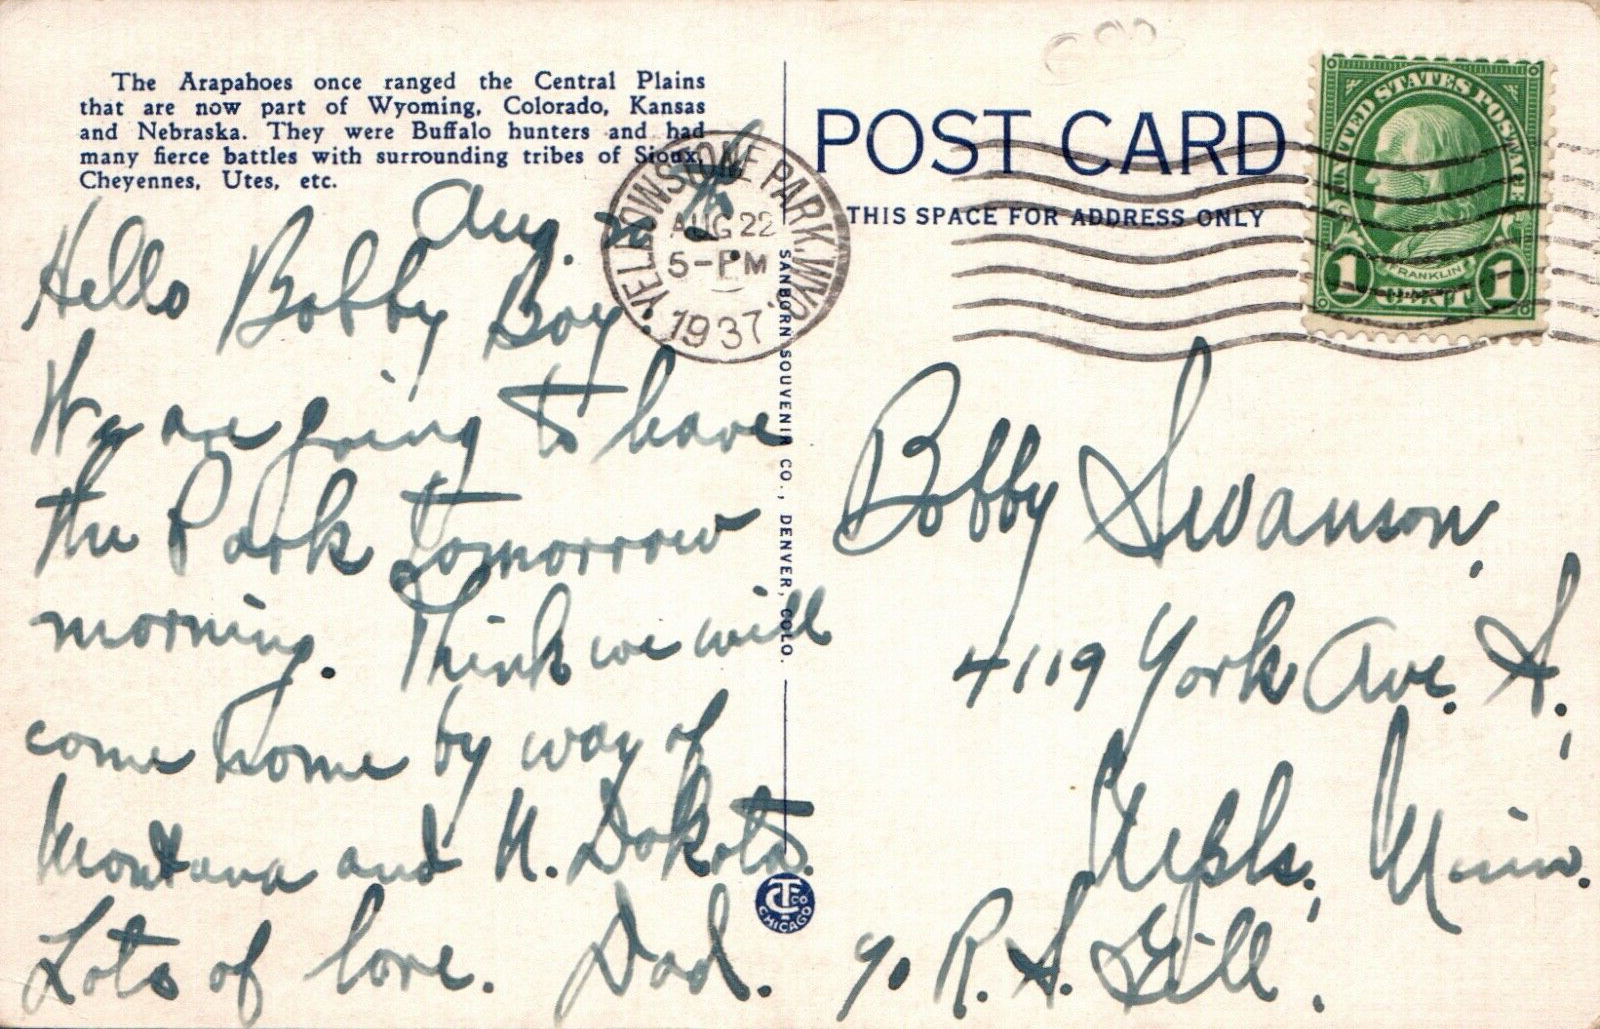 The Arapahoes once ranged the Central Plains
that are now part of Wyoming, Colorado, Kansas
and Nebraska. They were Buffalo hunters and had
many fierce battles with surrounding tribes of Sioux,
Cheyennes, Utes, etc.
Aug.
Hello Bobby Boy
We are going to leave
the Park tomorrow
morning. Think we will
come home by way of
Montana and N. Dakota.
Lots of love. Dad.
YELLOWSTONE PARK, WYO.
AUG 22
5-PM
1937
SANBORN SOUVENIR CO., DENVER, COLO.
CT CO
CHICAGO
POST CARD
THIS SPACE FOR ADDRESS ONLY
UNITED STATES POSTAGE
FRANKLIN
1 CENT 1
Bobby Swanson,
4119 York Ave. S.,
Mpls., Minn.
c/o R. S. Gill.